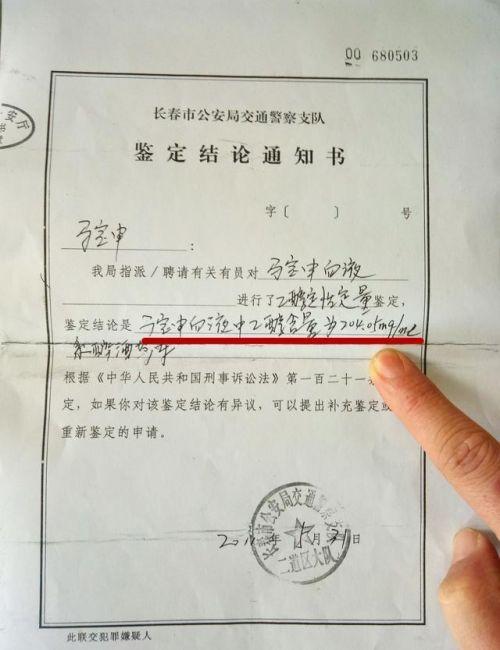 00 680503
长春市公安局交通警察支队
鉴定结论通知书
字〔 〕 号
马宝申 :
我局指派/聘请有关有员对 马宝申血液
进行了 乙醇定性定量 鉴定,
鉴定结论是 马宝申血液中乙醇含量为204.05mg/ml
系醉酒
根据《中华人民共和国刑事诉讼法》第一百二十一
定,如果你对该鉴定结论有异议,可以提出补充鉴定或
重新鉴定的申请。
长春市公安局交通警察支
二道区大队
年 月 21日
此联交犯罪嫌疑人